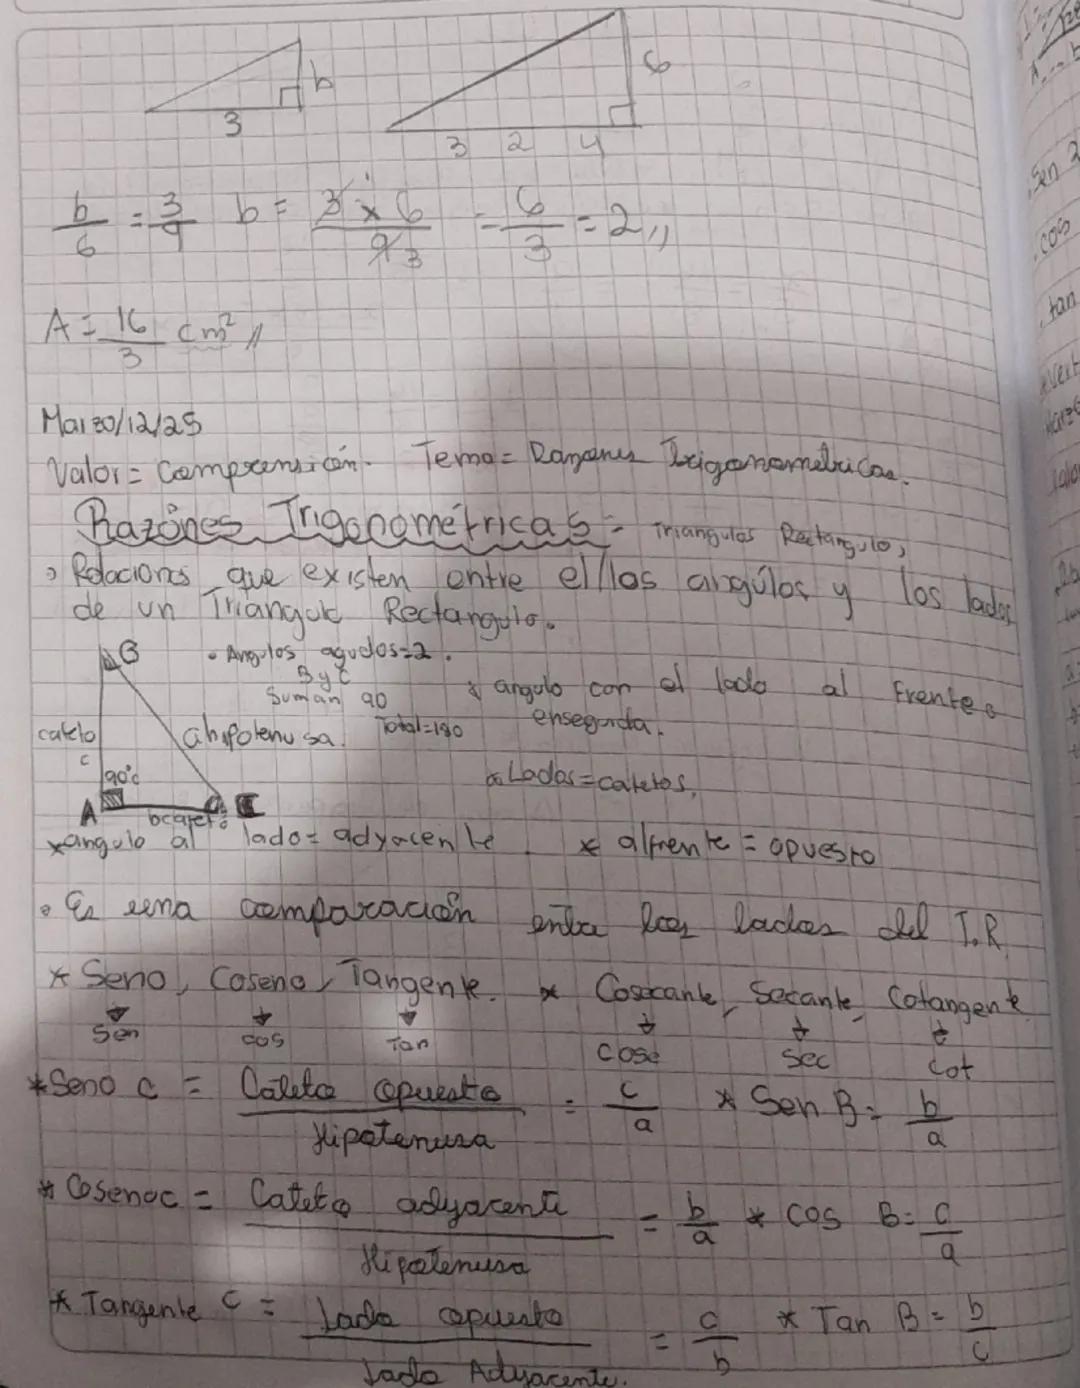 3 h 6
3 2 4
b/6 = 3/9 b = 3 x 6/9 3 = 6/3 = 2,,
A = 16/3 cm² //
Marzo/12/25
Valor = Comprensión. Tema = Razones Trigonometricas.
Razónes Trigonométricas = Triangulos Rectangulo,
Relaciones que existen entre el/los angúlos y los lados
de un Triangulo Rectangulo.
B • Angulos agudos=2.
B y C
Suman 90
Total=180
* angulo con el lado al Frente
enseguida.
cateto
c
a hipotenusa.
90°
A b cateto C
* Lados = catetos.
*angulo al lado = adyacente * al frente = opuesto
• Es una comparación entre los lados del T.R
* Seno, Coseno, Tangente. * Cosecante, Secante, Cotangente
Sen cos Tan Cosc Sec Cot
*Seno c = Cateto opuesto/Hipotenusa = c/a * Sen B = b/a
* Coseno c = Cateto adyacente/Hipotenusa = b/a * cos B = c/a
* Tangente c = Lado opuesto/Lado Adyacente. = c/b * Tan B = b/c
Sen
cos
tan